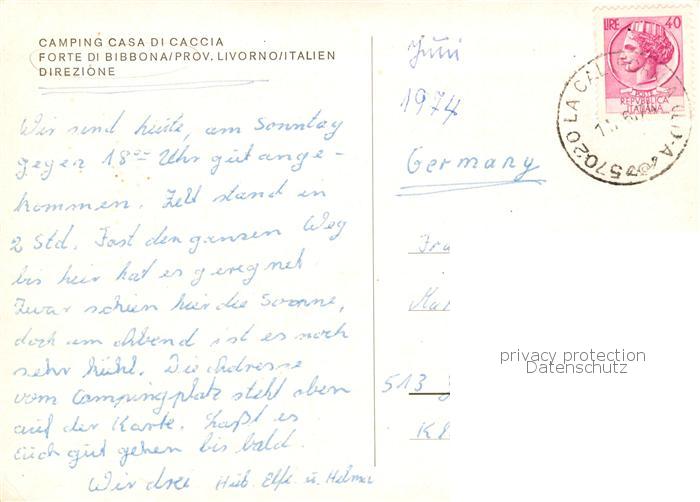 CAMPING CASA DI CACCIA
FORTE DI BIBBONA/PROV. LIVORNO/ITALIEN
DIREZIONE
Wir sind heute, am Sonntag
gegen 18 Uhr gut ange-
kommen. Zelt stand in
2 Std. Fast den ganzen Weg
bis hier hat es geregnet.
Zwar schien hier die Sonne,
doch am Abend ist es noch
sehr kühl. Die Adresse
vom Campingplatz steht oben
auf der Karte. Laßt es
Euch gut gehen bis bald.
Wir drei Hub. Elfi u. Helmar
Juni
1974
Germany
Fra
513
LIRE 40
REPVBBLICA
ITALIANA
57020 LA CAL
privacy protection
Datenschutz